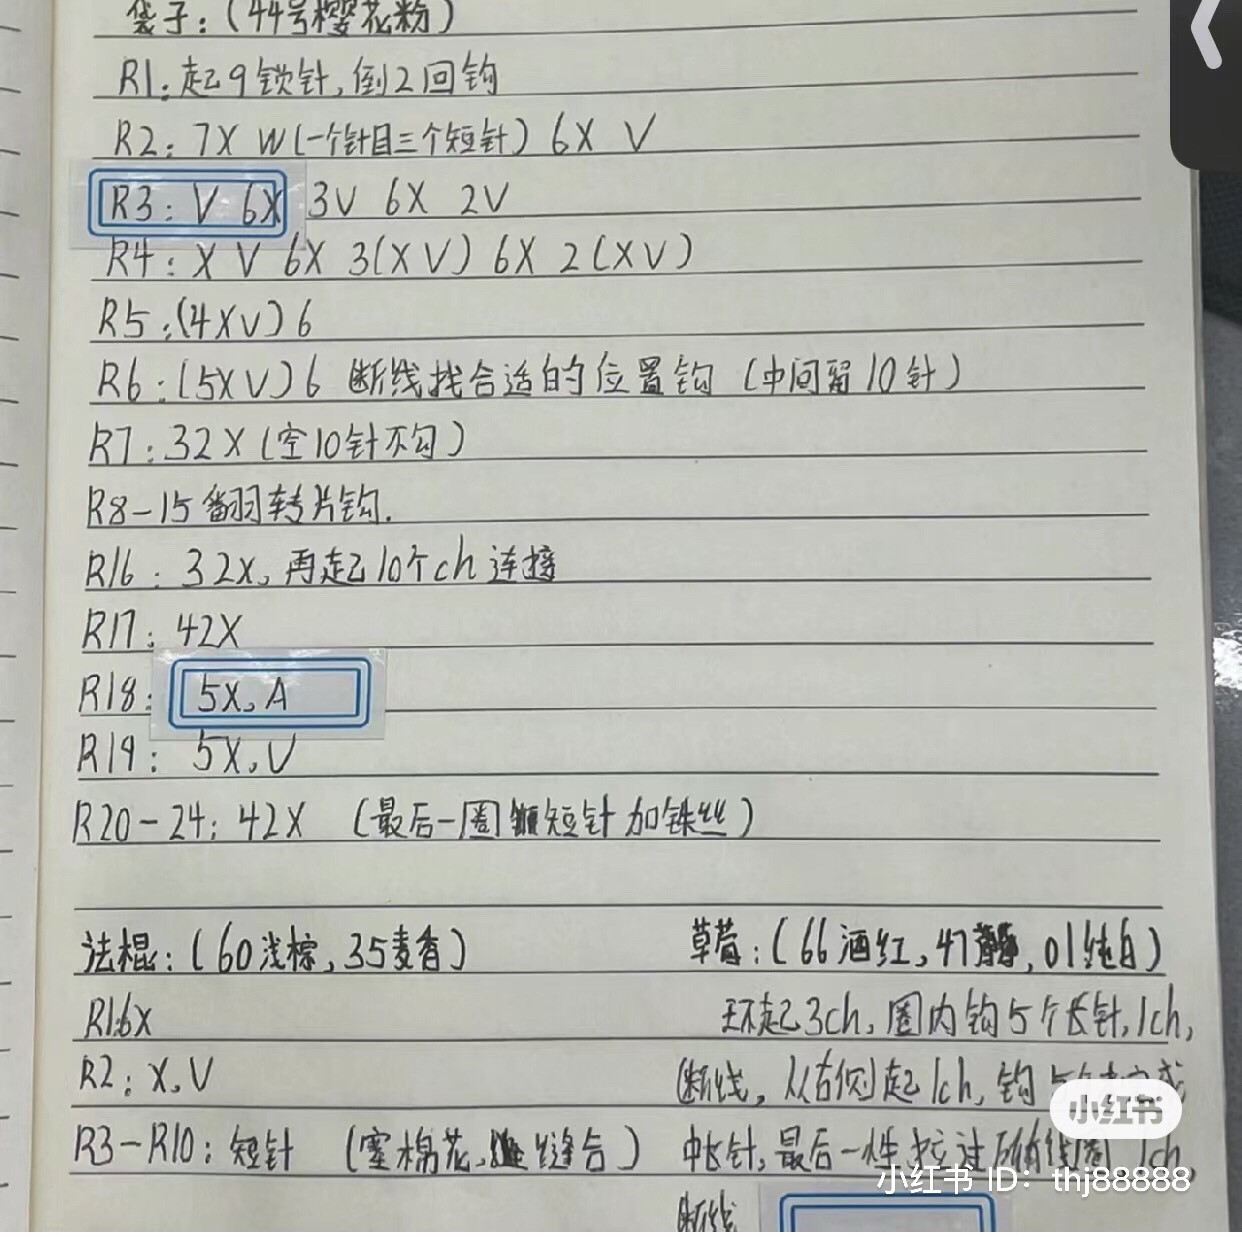 袋子：（44号樱花粉）
R1：起9锁针，倒2回钩
R2：7X W（一个针目三个短针）6X V
R3：V 6X 3V 6X 2V
R4：X V 6X 3(XV) 6X 2(XV)
R5：(4XV)6
R6：(5XV)6 断线找合适的位置钩（中间留10针）
R7：32X（空10针不勾）
R8-15翻转片钩.
R16：32X，再起10个ch连接
R17：42X
R18：5X，A
R19：5X，V
R20-24：42X （最后一圈 短针加铁丝）
法棍：（60浅棕，35麦香）
R1：6X
R2：X，V
R3-R10：短针 （塞棉花，缝合）
草莓：（66酒红，47，01纯白）
环起3ch，圈内钩5个长针，1ch，
断线，从右侧起1ch，钩
中长针，最后一 1ch，
断线
小红书
小红书 ID：thj88888